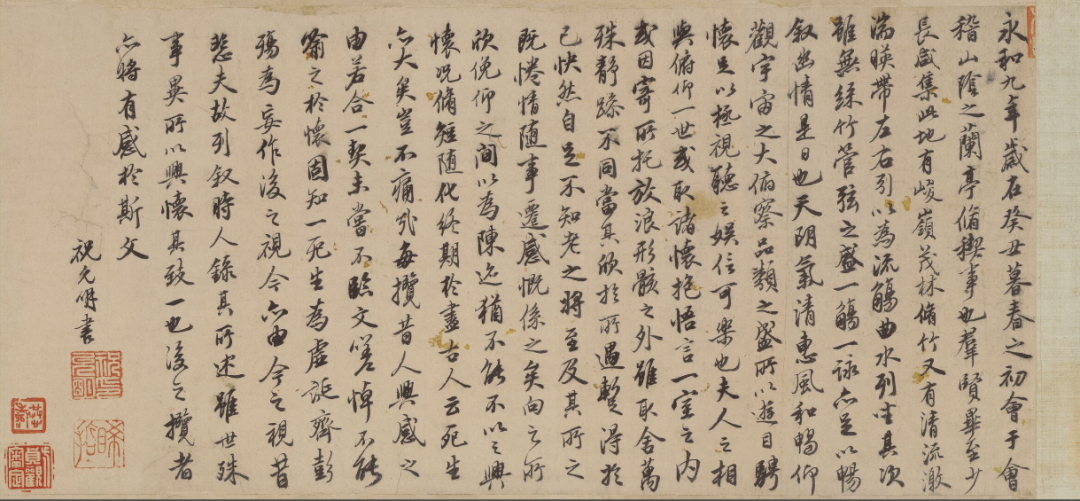 永和九年歲在癸丑暮春之初會于會
稽山陰之蘭亭脩稧事也羣賢畢至少
長咸集此地有峻嶺茂林脩竹又有清流激
湍暎帶左右引以為流觴曲水列坐其次
雖無絲竹管弦之盛一觴一詠亦足以暢
叙幽情是日也天朗氣清惠風和暢仰
觀宇宙之大俯察品類之盛所以遊目騁
懷足以極視聽之娛信可樂也夫人之相
與俯仰一世或取諸懷抱悟言一室之內
或因寄所托放浪形骸之外雖取舍萬
殊靜躁不同當其欣於所遇蹔得於
己快然自足不知老之將至及其所之
既惓情随事遷感慨係之矣向之所
欣俛仰之間以為陳迹猶不能不以之興
懷況脩短随化終期於盡古人云死生
亦大矣豈不痛哉每攬昔人興感之
由若合一契未嘗不臨文嗟悼不能
喻之於懷固知一死生為虛誕齊彭
殤為妄作後之視今亦由今之視昔
悲夫故列叙時人錄其所述雖世殊
事異所以興懷其致一也後之攬者
亦將有感於斯文
祝允明書